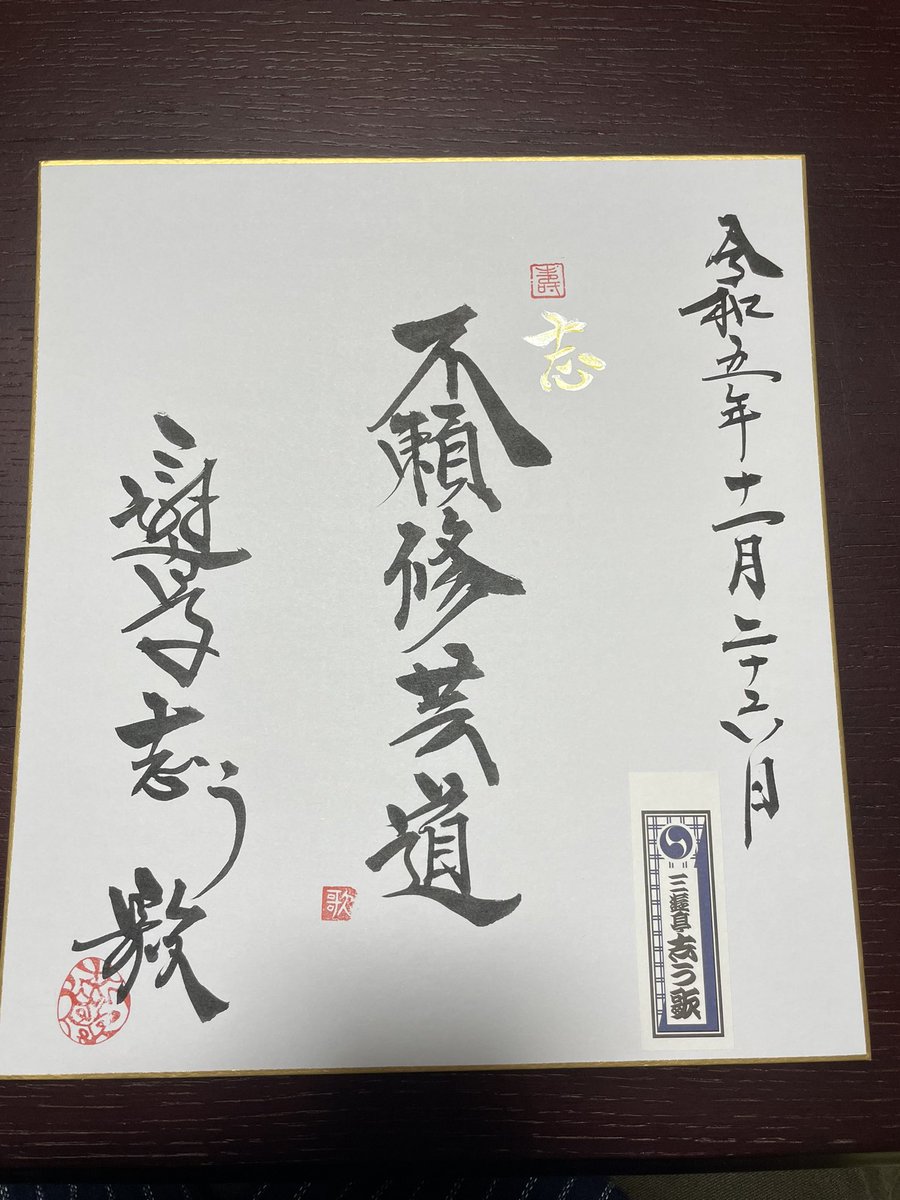 令和五年十一月二十六日
壽
志
不頼修芸道
歌
三遊亭志う歌
三遊亭志う歌